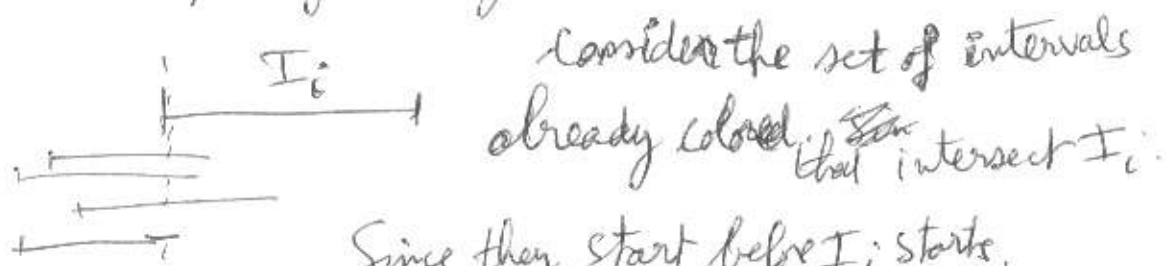 I_i
Consider the set of intervals
already colored that intersect I_i.
Since they start before I_i starts,